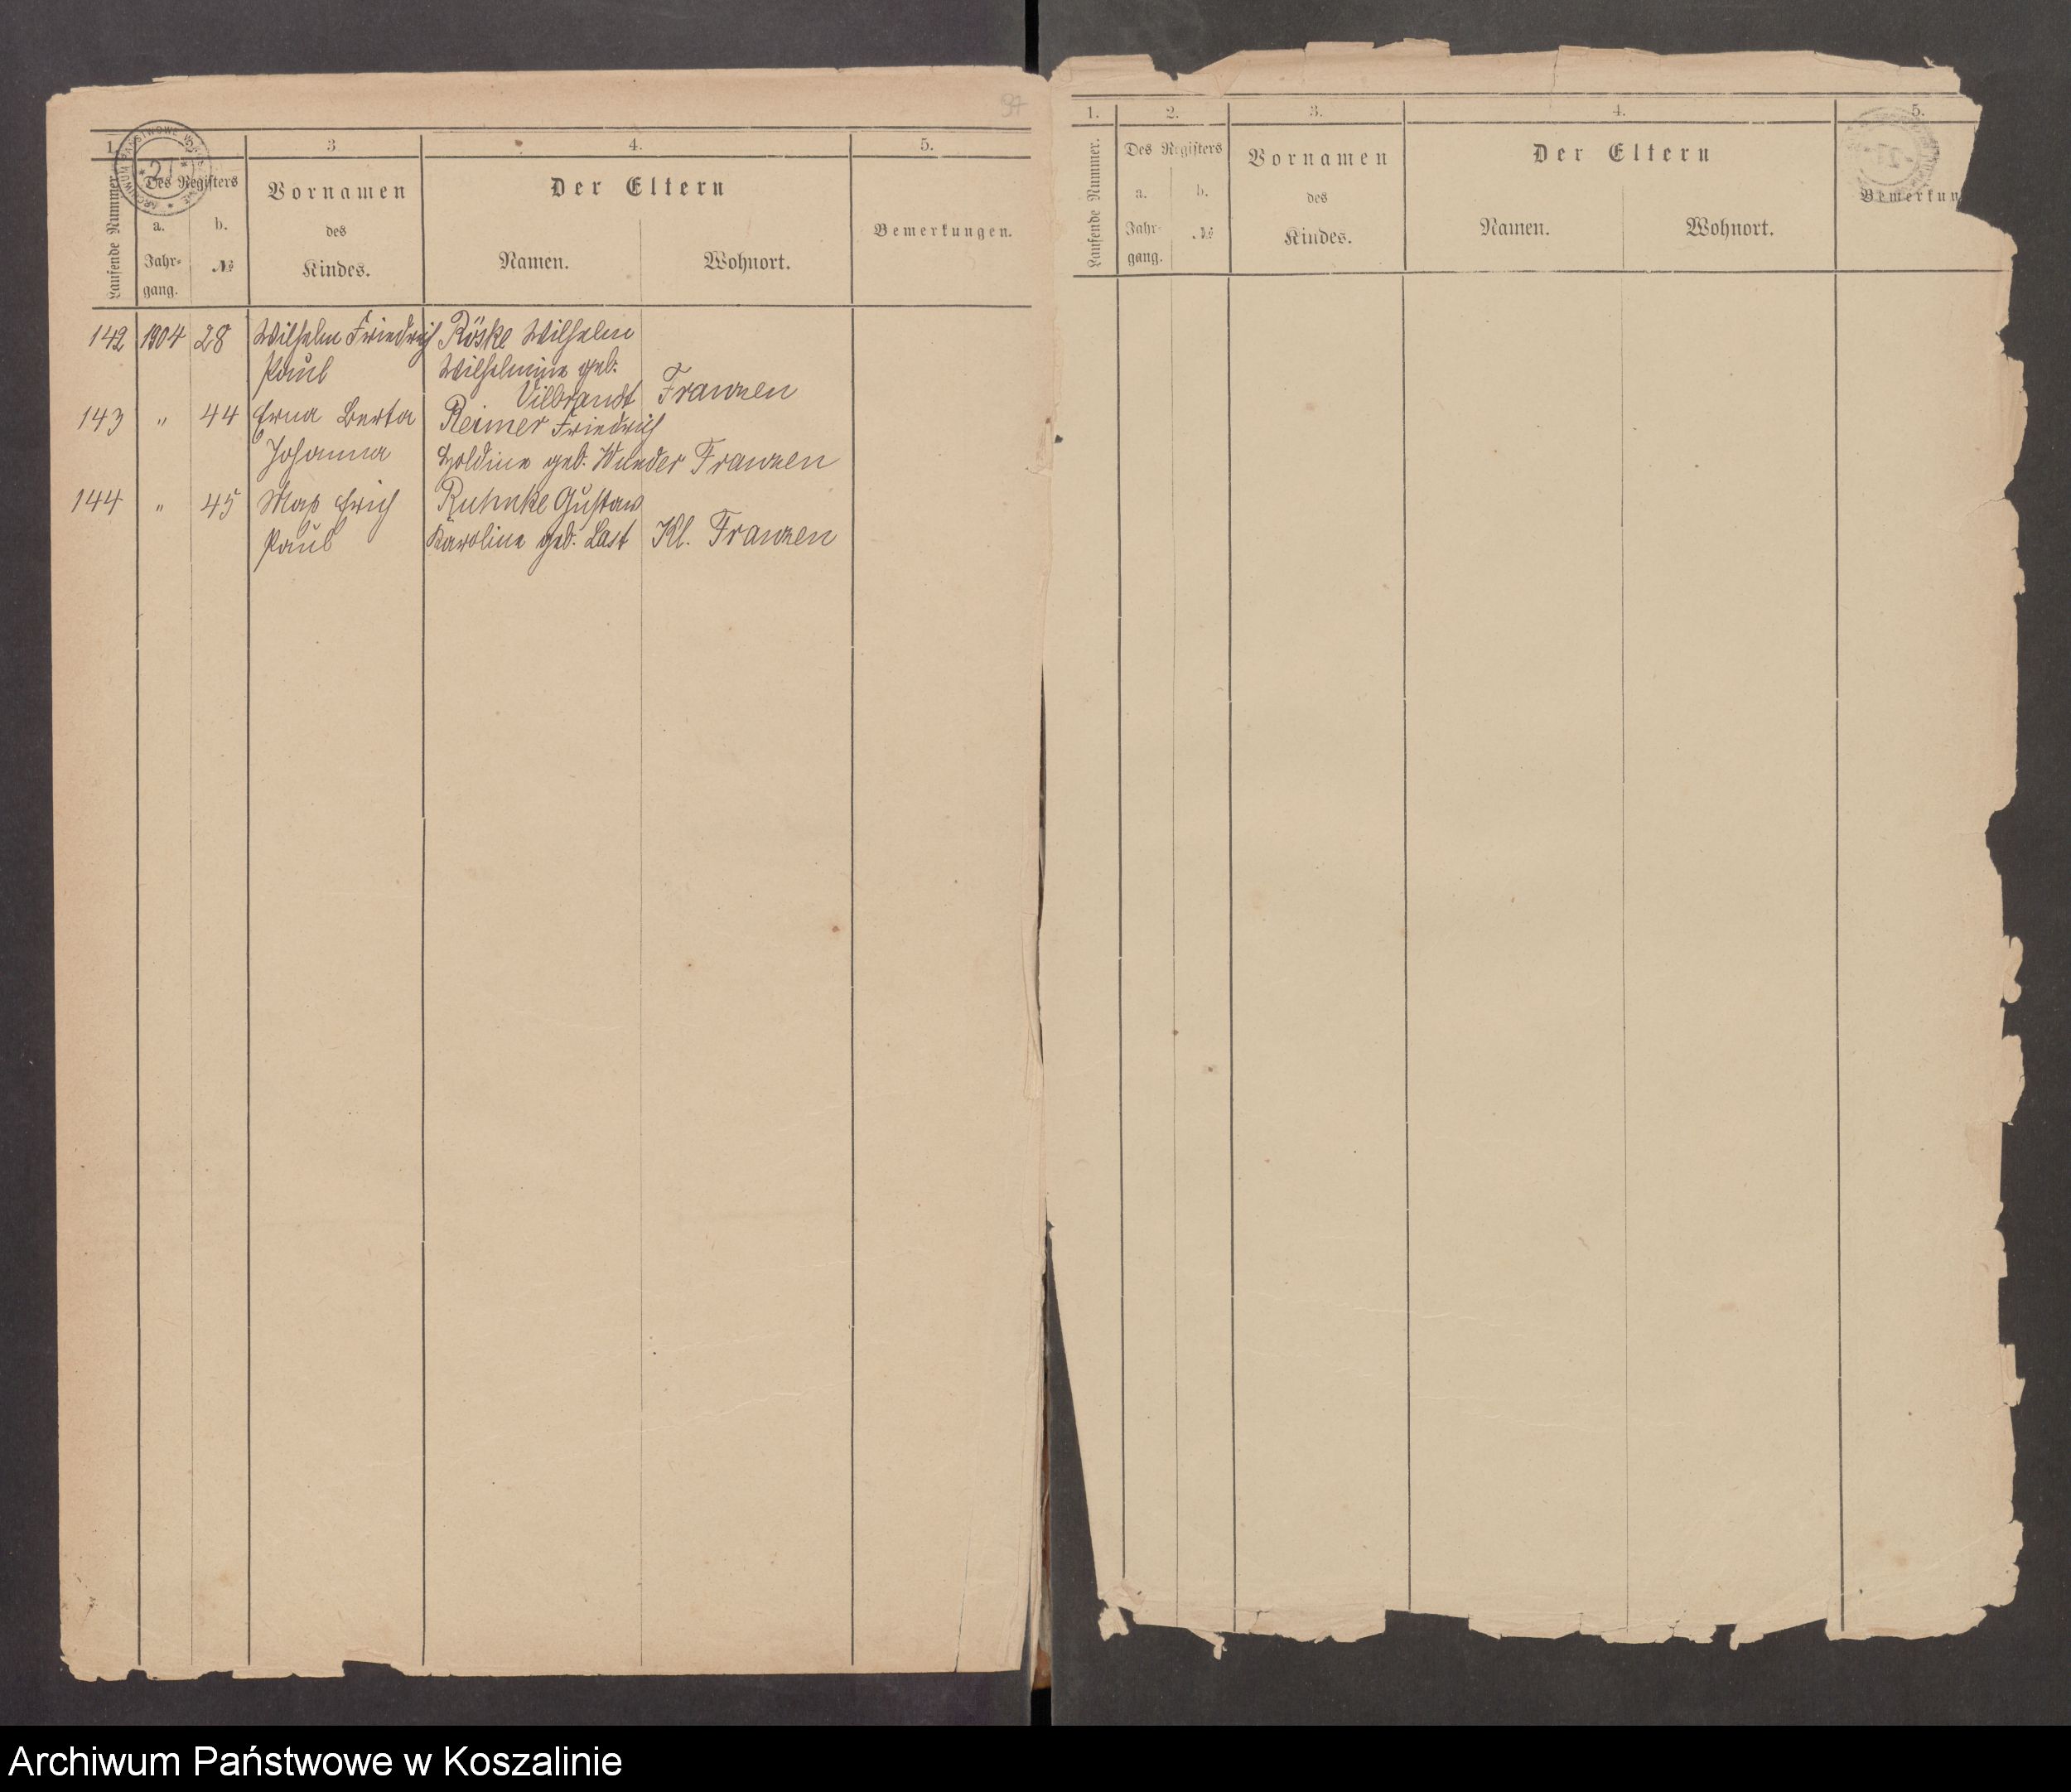 97
1. 2. 3 4. 5.
Laufende Nummer.
Des Registers
a. b.
Jahr- №
gang.
Vornamen
des
Kindes.
Der Eltern
Namen. Wohnort.
Bemerkungen.
ARCHIWUM PAŃSTWOWE
27
142 1904 28 Wilhelm Friedrich Röske Wilhelm
Paul Wilhelmine geb.
Vilbrandt Franzen
143 " 44 Erna Berta Reimer Friedrich
Johanna Holdine geb. Wunder Franzen
144 " 45 Max Erich Ruhnke Gustav
Paul Karoline geb. Last Kl. Franzen
1. 2. 3. 4. 5.
Laufende Nummer.
Des Registers
a. b.
Jahr- №
gang.
Vornamen
des
Kindes.
Der Eltern
Namen. Wohnort.
Bemerkun
Archiwum Państwowe w Koszalinie